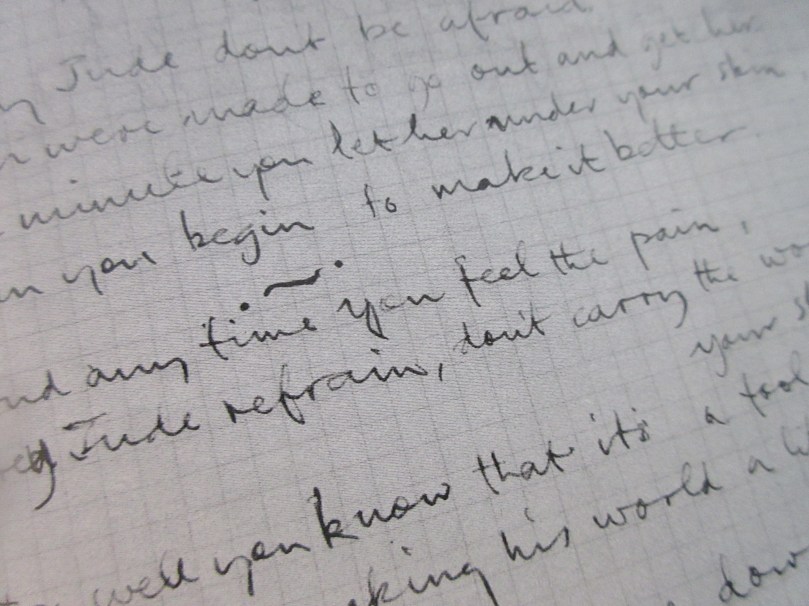 Jude dont be afraid
were made to go out and get her
minute you let her under your skin
you begin to make it better
any time you feel the pain,
Jude refrain, don't carry the
your
well you know that it's a fool
his world a
dow